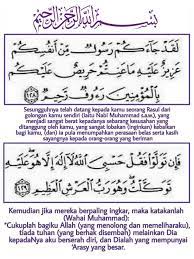 بِسْمِ اللَّهِ الرَّحْمَٰنِ الرَّحِيمِ
لَقَدْ جَاءَكُمْ رَسُولٌ مِّنْ أَنفُسِكُمْ
عَزِيزٌ عَلَيْهِ مَاعَنِتُّمْ حَرِيصٌ عَلَيْكُم
بِالْمُؤْمِنِينَ رَءُوفٌ رَّحِيمٌ ١٢٨
Sesungguhnya telah datang kepada kamu seorang Rasul dari
golongan kamu sendiri (iaitu Nabi Muhammad s.a.w), yang
menjadi sangat berat kepadanya sebarang kesusahan yang
ditanggung oleh kamu, yang sangat tamak (inginkan) kebaikan
bagi kamu, (dan) ia pula menumpahkan perasaan belas serta kasih
sayangnya kepada orang-orang yang beriman
فَإِن تَوَلَّوْا فَقُلْ حَسْبِيَ اللَّهُ لَا إِلَٰهَ إِلَّا هُوَ عَلَيْهِ
تَوَكَّلْتُ وَهُوَ رَبُّ الْعَرْشِ الْعَظِيمِ ١٢٩
Kemudian jika mereka berpaling ingkar, maka katakanlah
(Wahai Muhammad):
"Cukuplah bagiku Allah (yang menolong dan memeliharaku),
tiada tuhan (yang berhak disembah) melainkan Dia
kepadaNya aku berserah diri, dan Dialah yang mempunyai
'Arasy yang besar.